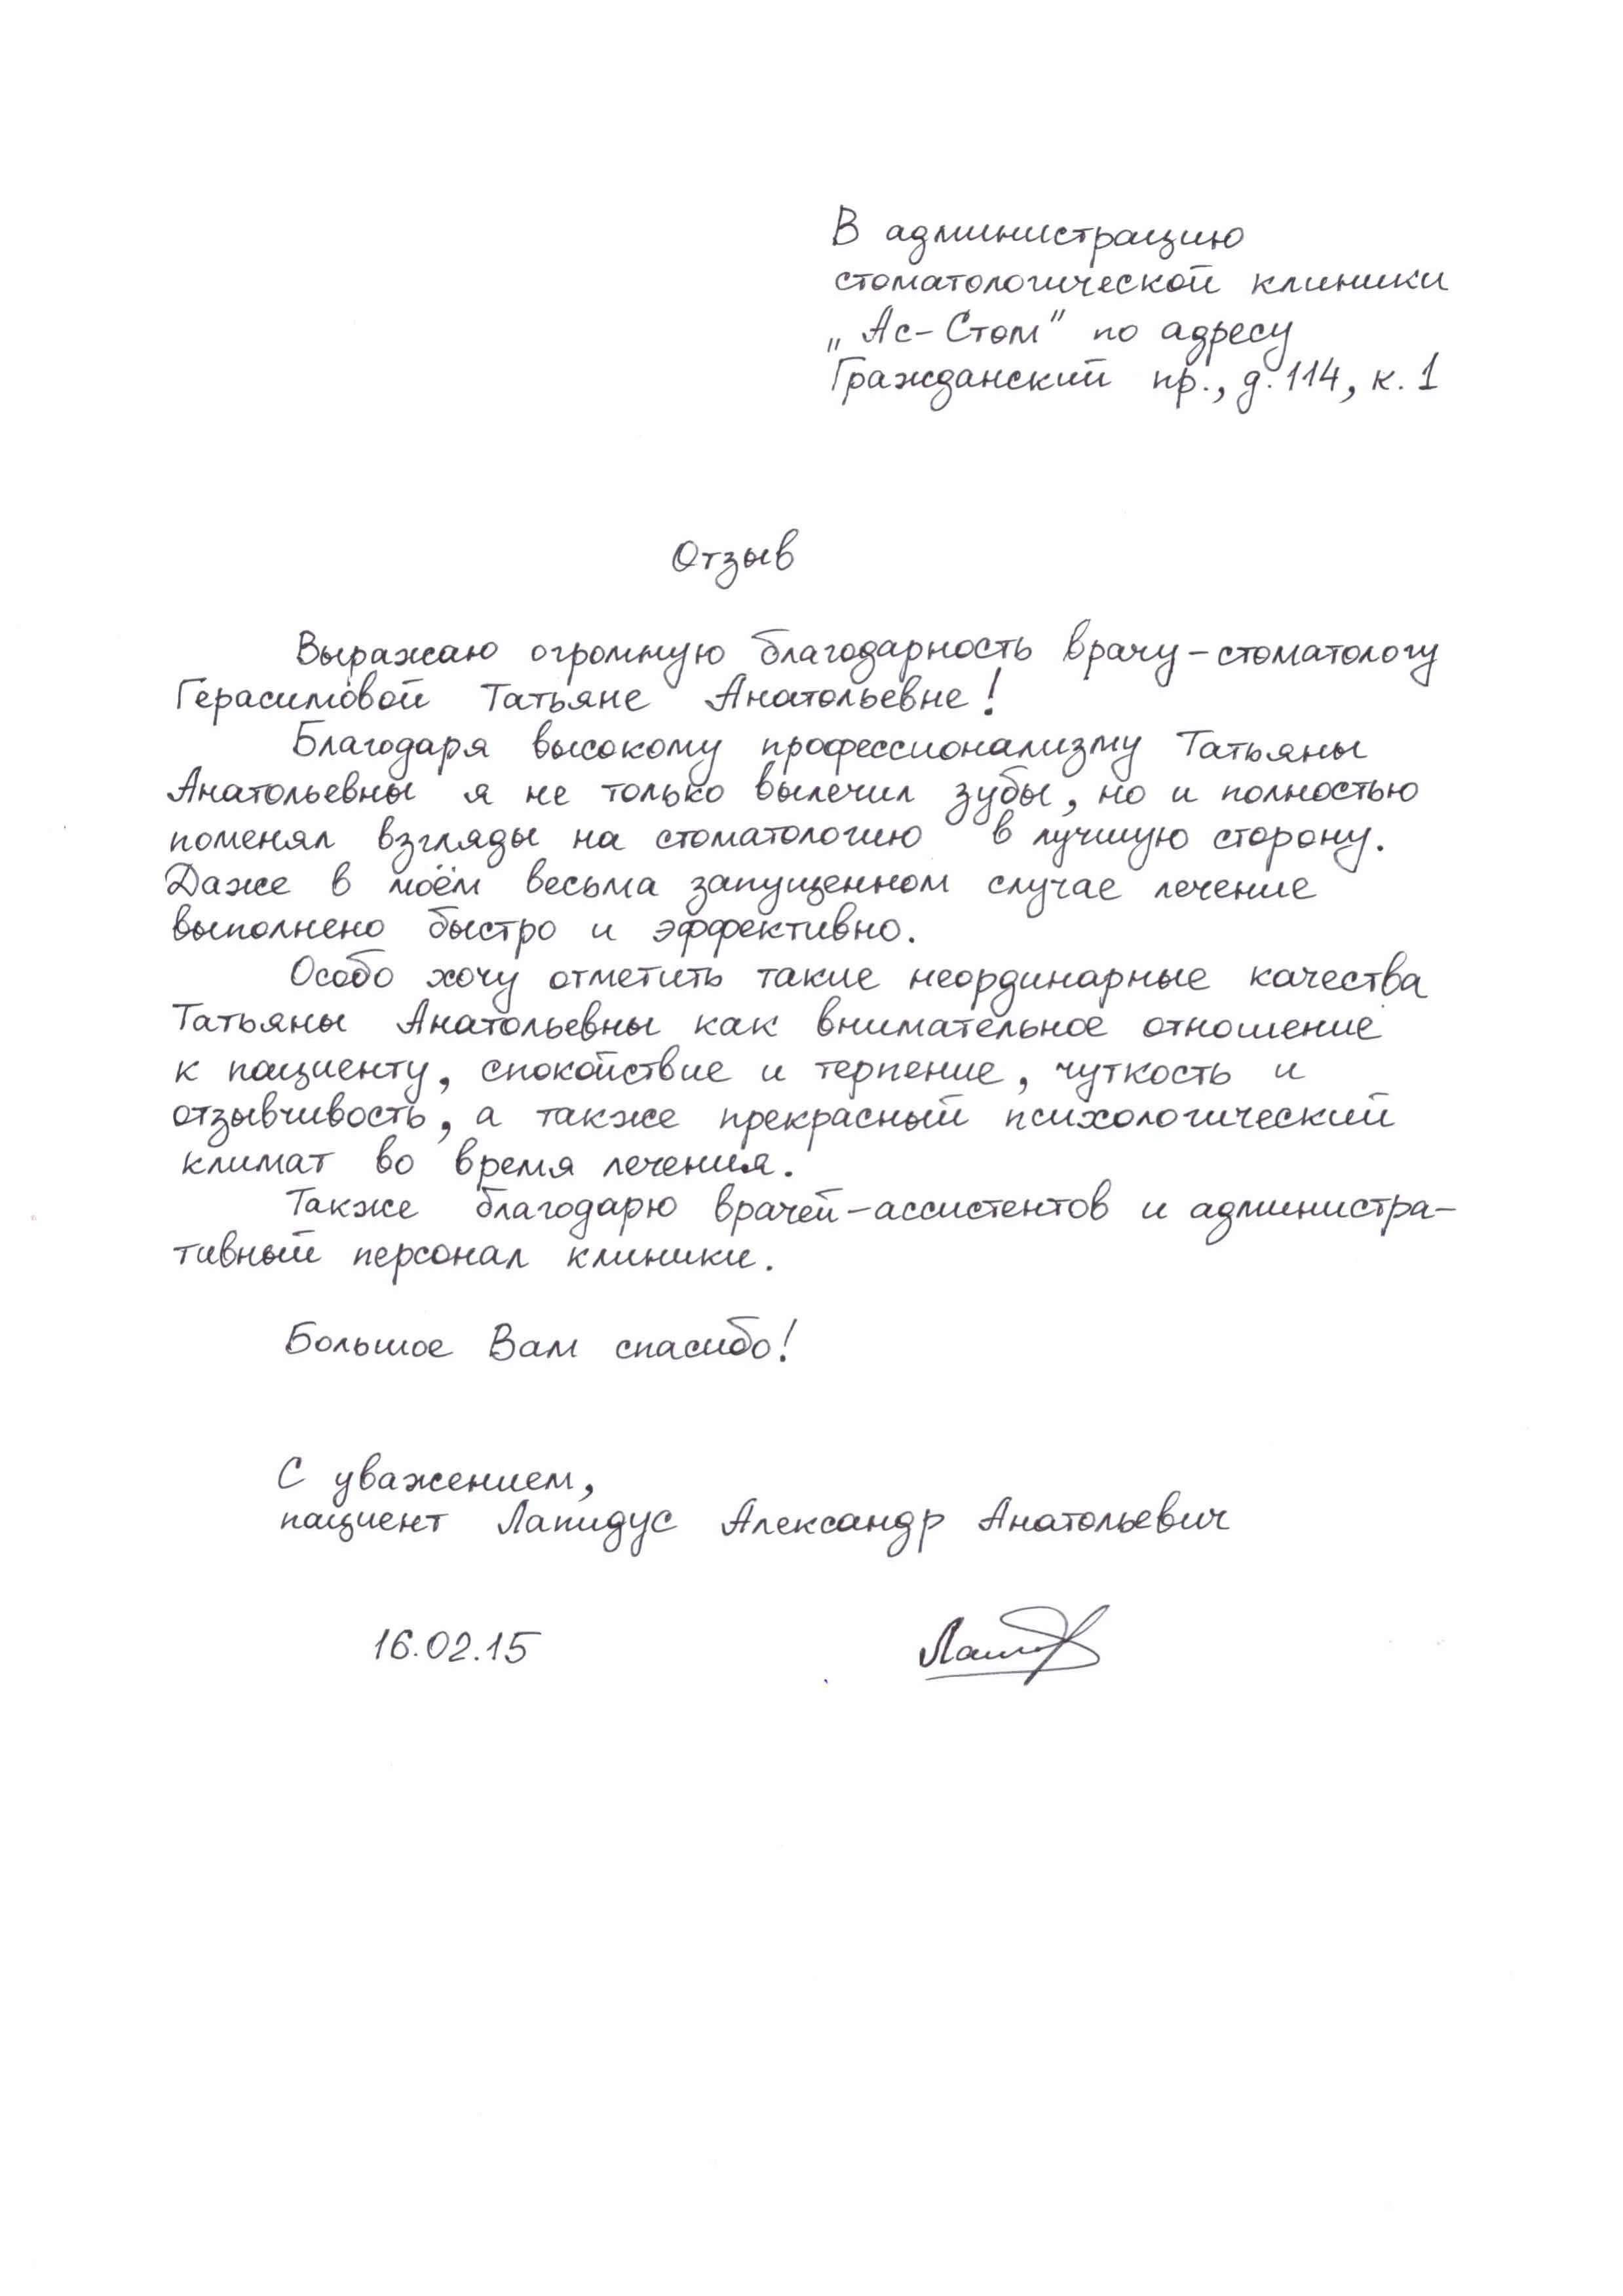 В администрацию
стоматологической клиники
„Ас-Стом" по адресу
Гражданский пр., д. 114, к. 1
Отзыв
Выражаю огромную благодарность врачу-стоматологу
Герасимовой Татьяне Анатольевне!
Благодаря высокому профессионализму Татьяны
Анатольевны я не только вылечил зубы, но и полностью
поменял взгляды на стоматологию в лучшую сторону.
Даже в моём весьма запущенном случае лечение
выполнено быстро и эффективно.
Особо хочу отметить такие неординарные качества
Татьяны Анатольевны как внимательное отношение
к пациенту, спокойствие и терпение, чуткость и
отзывчивость, а также прекрасный психологический
климат во время лечения.
Также благодарю врачей-ассистентов и администра-
тивный персонал клиники.
Большое Вам спасибо!
С уважением,
пациент Лапидус Александр Анатольевич
16.02.15